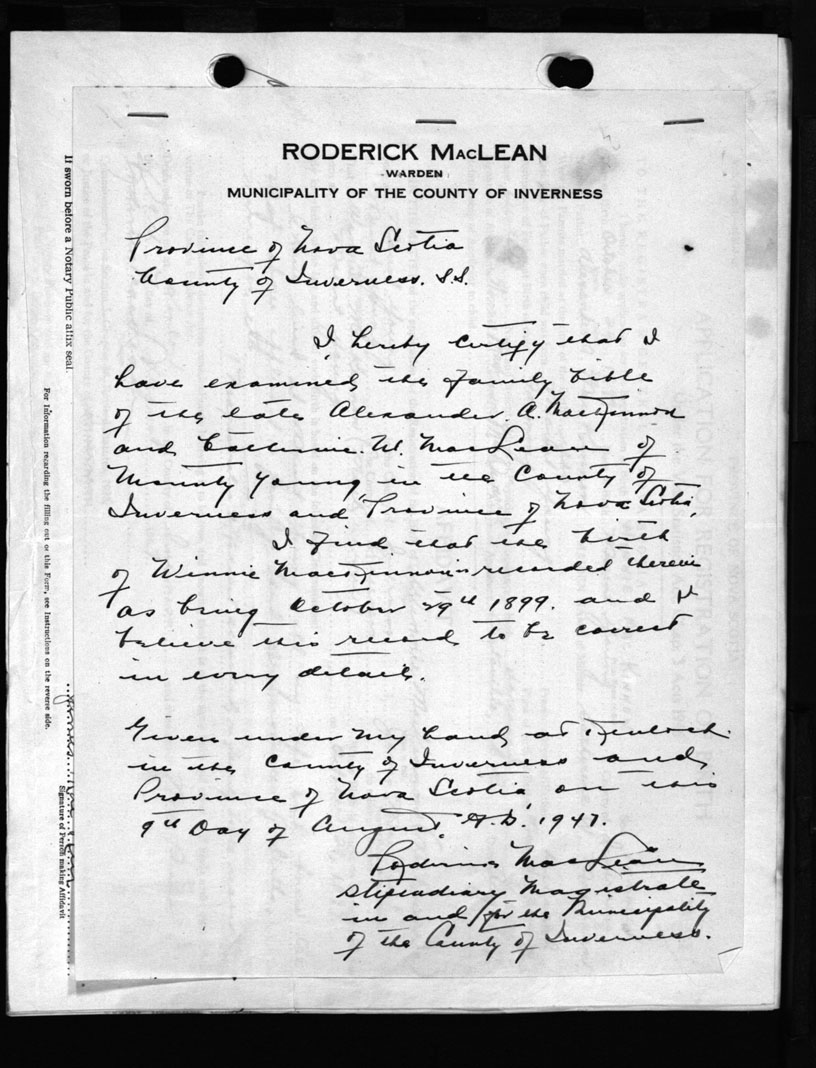 RODERICK MACLEAN
WARDEN
MUNICIPALITY OF THE COUNTY OF INVERNESS
Province of Nova Scotia
County of Inverness. S.S.
I hereby certify that I
have examined the family bible
of the late Alexander. A. MacKinnon
and Catherine. W. MacLean of
Mounty Young, in the County of
Inverness and Province of Nova Scotia,
I find that the birth
of Winnie MacKinnon is recorded therein
as being October 29th 1899. and I
believe this record to be correct
in every detail.
Given under my hand at Kenloch
in the County of Inverness and
Province of Nova Scotia on this
9th Day of August, A.D. 1947.
MacLean
Stipendiary Magistrate
in and for the Municipality
of the County of Inverness.
If sworn before a Notary Public affix seal.
For Information regarding the filling out of this Form, see Instructions on the reverse side.
Signature of Person making Affidavit